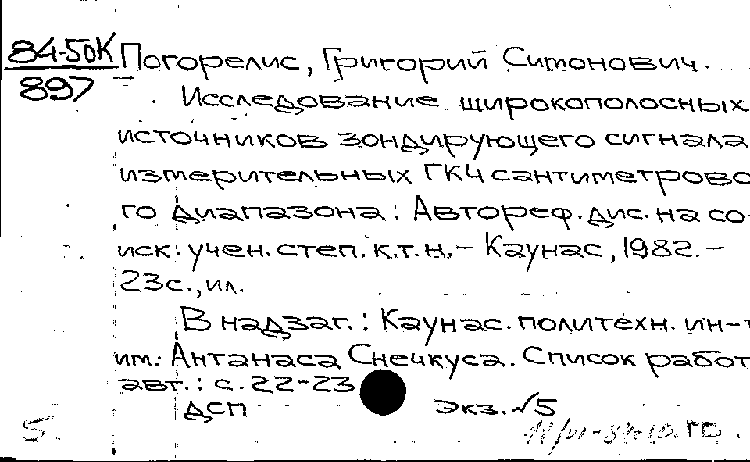 84-50К
897
Погорелис, Григорий Симонович.
Исследование широкополосных
источников зондирующего сигнала
измерительных ГКЧ сантиметрово-
го диапазона: Автореф. дис. на со-
иск. учен. степ. к.т.н. – Каунас, 1982. –
23с., ил.
В надзаг.: Каунас. политехн. ин-т
им. Антанаса Снечкуса. Список работ
авт.: с. 22-23
ДСП экз. √5
5.